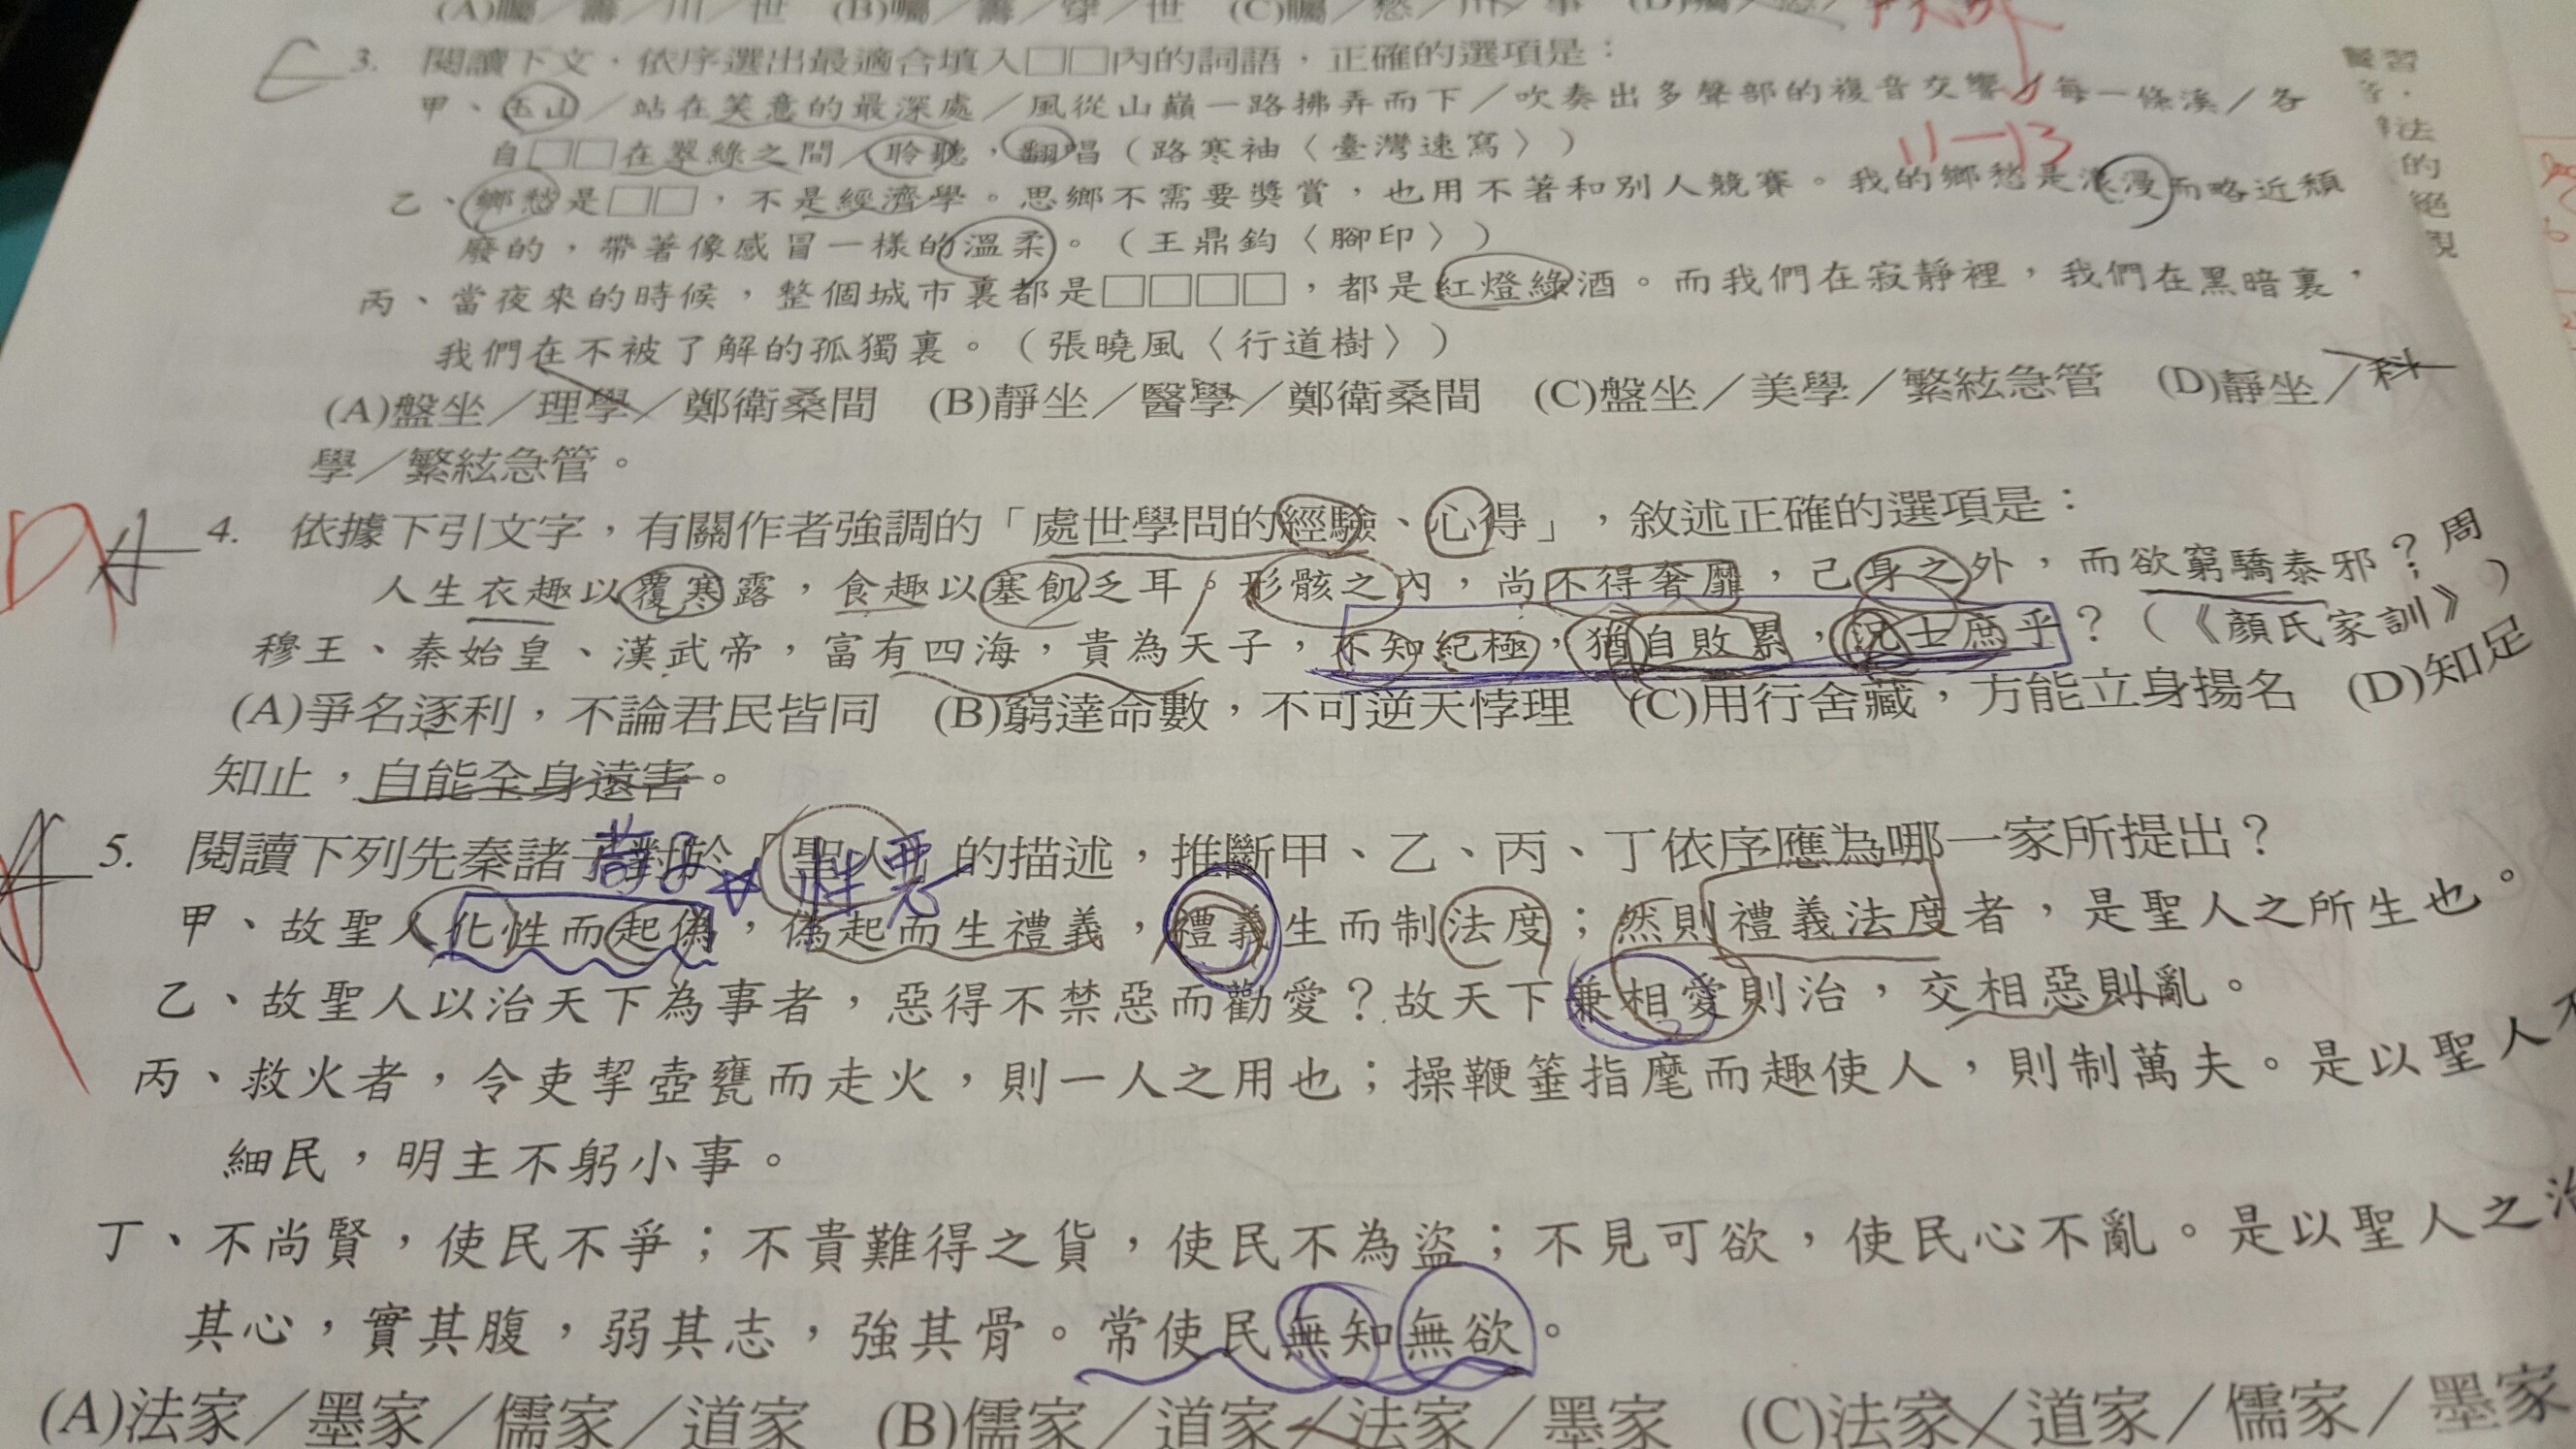 3. 閱讀下文，依序選出最適合填入□□內的詞語，正確的選項是：
甲、玉山／站在笑意的最深處／風從山巔一路拂弄而下／吹奏出多聲部的複音交響／每一條溪／各
自□□在翠綠之間／聆聽，翻唱（路寒袖〈臺灣速寫〉）
11-13
乙、鄉愁是□□，不是經濟學。思鄉不需要獎賞，也用不著和別人競賽。我的鄉愁是浪漫而略近頹
廢的，帶著像感冒一樣的溫柔。（王鼎鈞〈腳印〉）
丙、當夜來的時候，整個城市裏都是□□□□，都是紅燈綠酒。而我們在寂靜裡，我們在黑暗裏，
我們在不被了解的孤獨裏。（張曉風〈行道樹〉）
(A)盤坐／理學／鄭衛桑間 (B)靜坐／醫學／鄭衛桑間 (C)盤坐／美學／繁絃急管 (D)靜坐／科
學／繁絃急管。
D A 4. 依據下引文字，有關作者強調的「處世學問的經驗、心得」，敘述正確的選項是：
人生衣趣以覆寒露，食趣以塞飢乏耳。形骸之內，尚不得奢靡，己身之外，而欲窮驕泰邪？周
穆王、秦始皇、漢武帝，富有四海，貴為天子，不知紀極，猶自敗累，況士庶乎？（《顏氏家訓》）
(A)爭名逐利，不論君民皆同 (B)窮達命數，不可逆天悖理 (C)用行舍藏，方能立身揚名 (D)知足
知止，自能全身遠害。
5. 閱讀下列先秦諸子對於「聖人」的描述，推斷甲、乙、丙、丁依序應為哪一家所提出？
荀子 性惡
甲、故聖人化性而起偽，偽起而生禮義，禮義生而制法度；然則禮義法度者，是聖人之所生也。
乙、故聖人以治天下為事者，惡得不禁惡而勸愛？故天下兼相愛則治，交相惡則亂。
丙、救火者，令吏挈壺甕而走火，則一人之用也；操鞭箠指麾而趣使人，則制萬夫。是以聖人不
細民，明主不躬小事。
丁、不尚賢，使民不爭；不貴難得之貨，使民不為盜；不見可欲，使民心不亂。是以聖人之治
其心，實其腹，弱其志，強其骨。常使民無知無欲。
(A)法家／墨家／儒家／道家 (B)儒家／道家／法家／墨家 (C)法家／道家／儒家／墨家